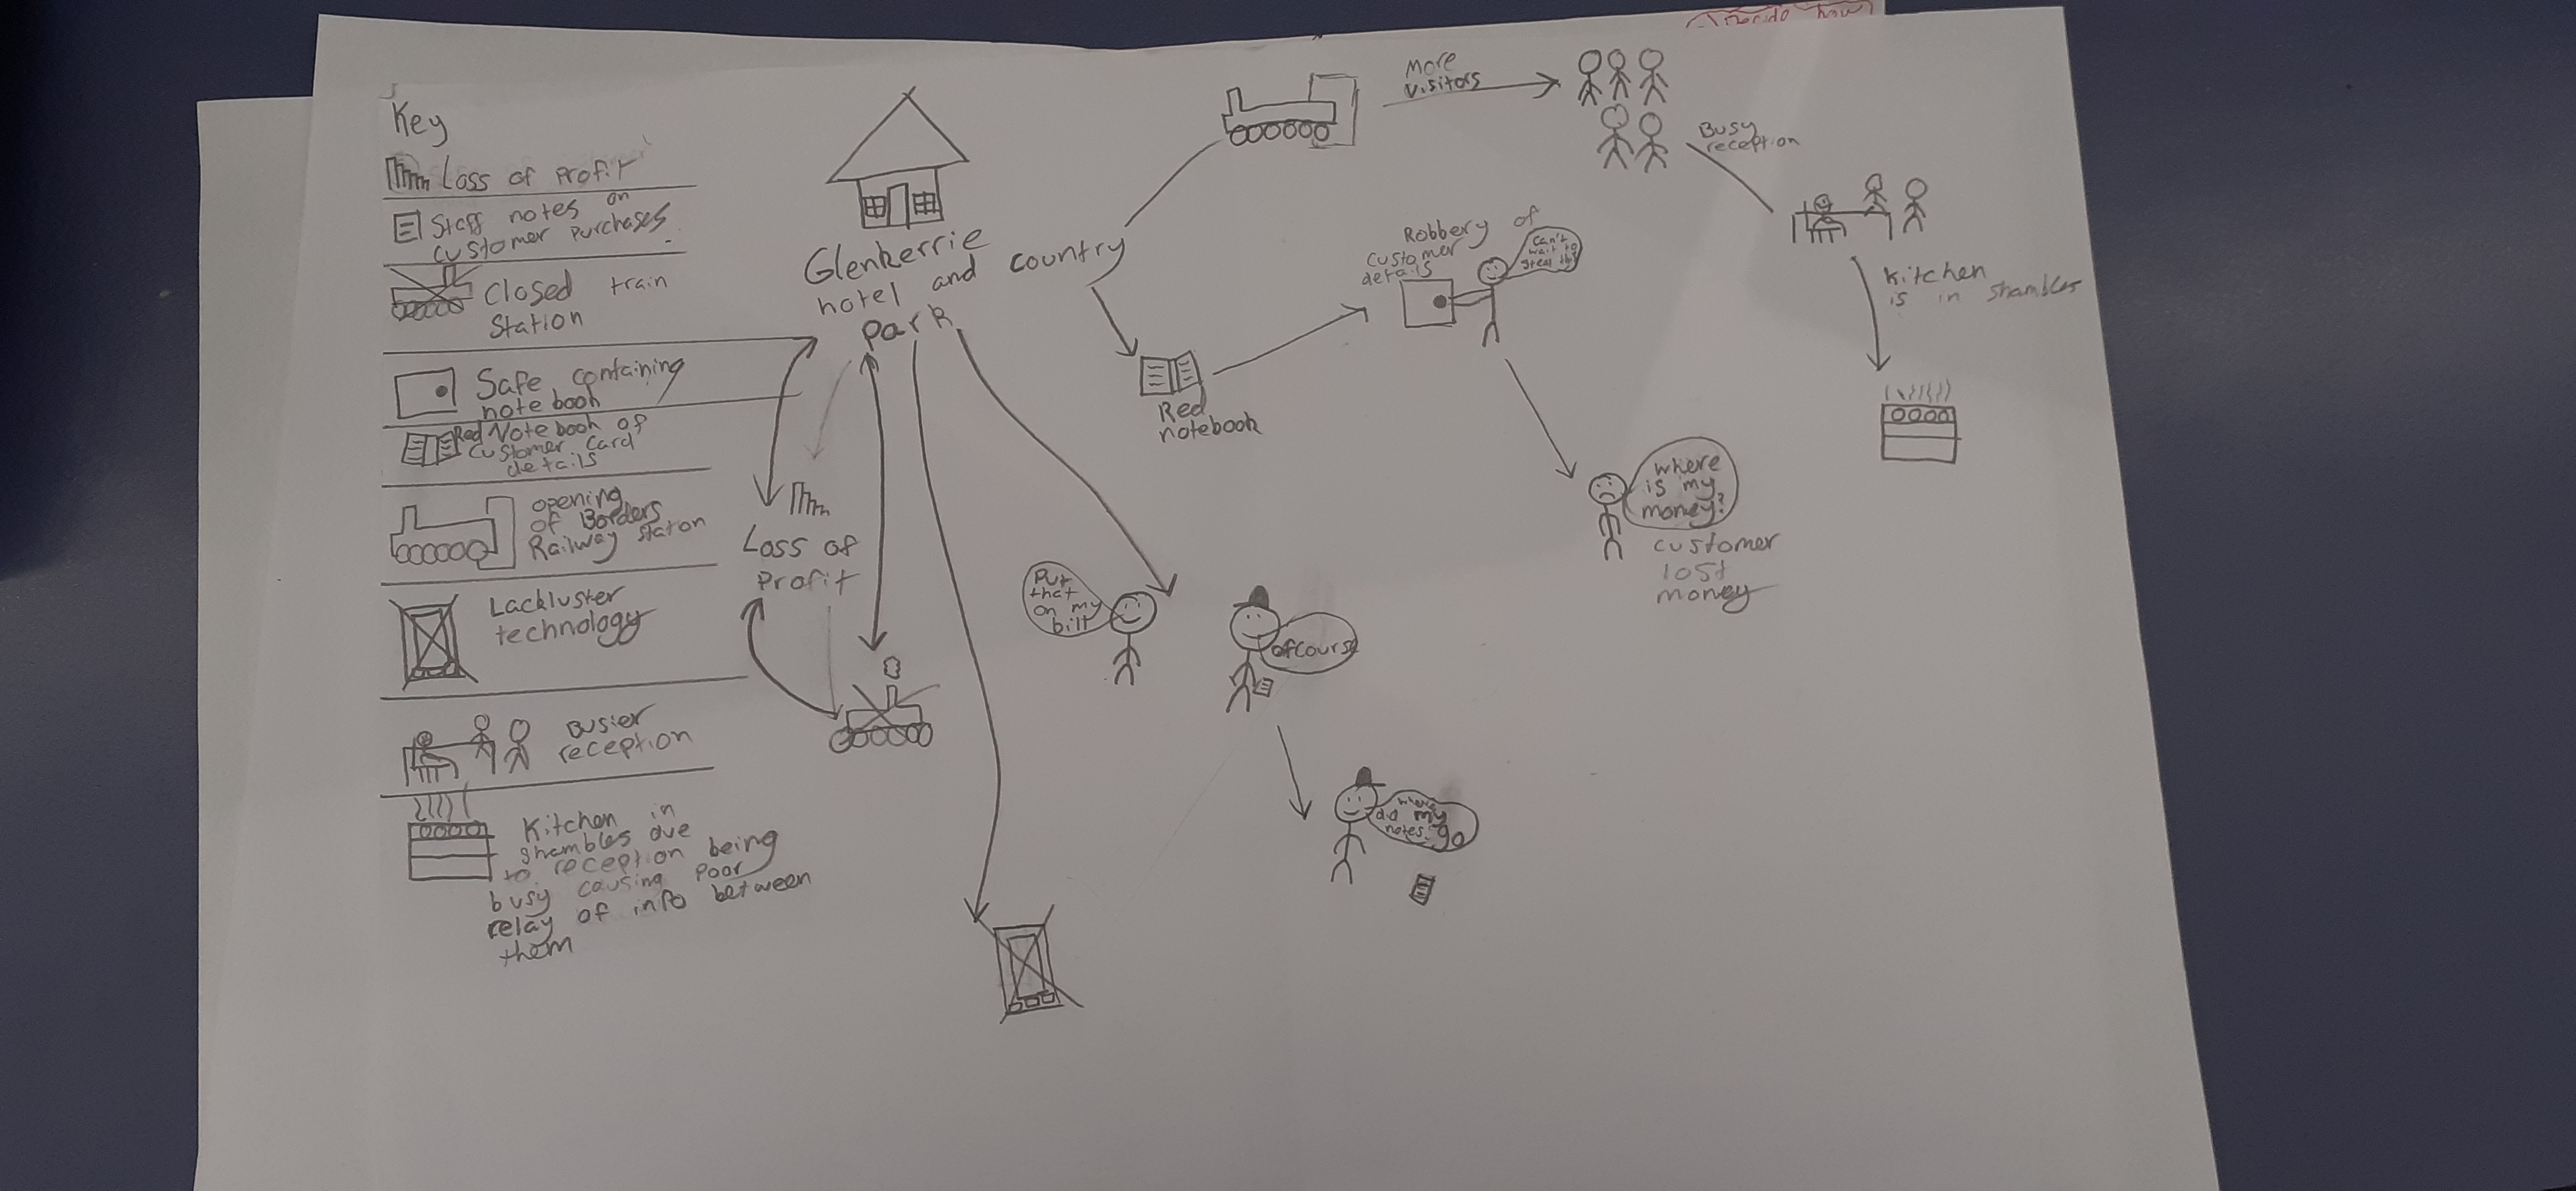 Decide how
Key
Loss of profit
Staff notes on
customer purchases
closed train
station
Safe containing
notebook
Red Notebook of
customer card
details
opening
of Borders
Railway station
Lackluster
technology
Busier
reception
Kitchen in
shambles due
to reception being
busy causing poor
relay of info between
them
Glenkerrie
hotel and country
park
Loss of
profit
More
visitors
Busy
reception
Kitchen
is in shambles
Robbery of
customer
details
can't
wait to
steal this
Red
notebook
where
is my
money?
customer
lost
money
Put
that
on my
bill
ofcourse
where
did my
notes go